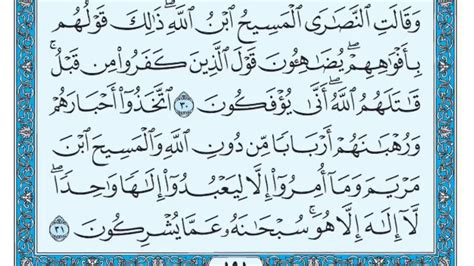 وَقَالَتِ النَّصَارَى الْمَسِيحُ ابْنُ اللَّهِ ۖ ذَٰلِكَ قَوْلُهُم
بِأَفْوَاهِهِمْ ۖ يُضَاهِئُونَ قَوْلَ الَّذِينَ كَفَرُوا مِن قَبْلُ ۚ
قَاتَلَهُمُ اللَّهُ ۚ أَنَّىٰ يُؤْفَكُونَ ٣٠ اتَّخَذُوا أَحْبَارَهُمْ
وَرُهْبَانَهُمْ أَرْبَابًا مِّن دُونِ اللَّهِ وَالْمَسِيحَ ابْنَ
مَرْيَمَ وَمَا أُمِرُوا إِلَّا لِيَعْبُدُوا إِلَٰهًا وَاحِدًا ۖ
لَّا إِلَٰهَ إِلَّا هُوَ ۚ سُبْحَانَهُ عَمَّا يُشْرِكُونَ ٣١